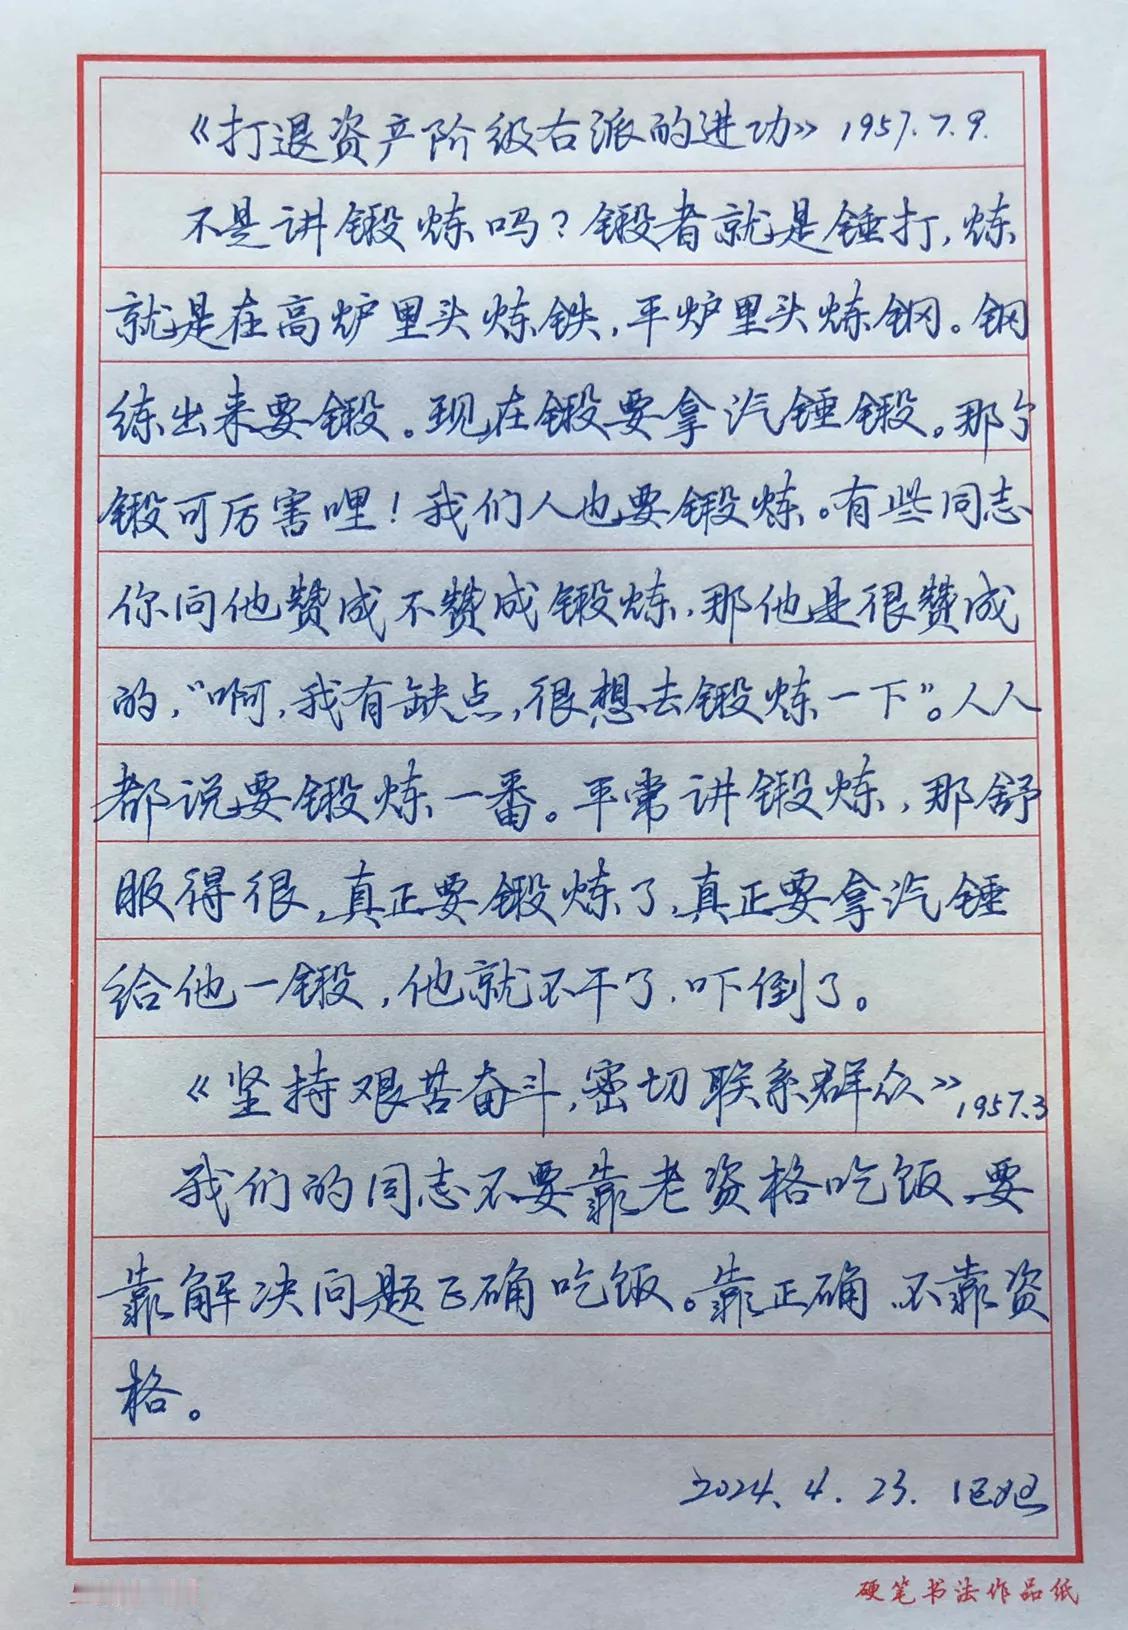 《打退资产阶级右派的进功》1957.7.9.
不是讲锻炼吗？锻者就是锤打，炼
就是在高炉里头炼铁，平炉里头炼钢。钢
练出来要锻。现在锻要拿汽锤锻。那个
锻可厉害哩！我们人也要锻炼。有些同志
你问他赞成不赞成锻炼，那他是很赞成
的，“啊，我有缺点，很想去锻炼一下”。人人
都说要锻炼一番。平常讲锻炼，那舒
服得很，真正要锻炼了，真正要拿汽锤
给他一锻，他就不干了，吓倒了。
《坚持艰苦奋斗，密切联系群众》1957.3
我们的同志不要靠老资格吃饭，要
靠解决问题正确吃饭。靠正确，不靠资
格。
2024.4.23.
硬笔书法作品纸